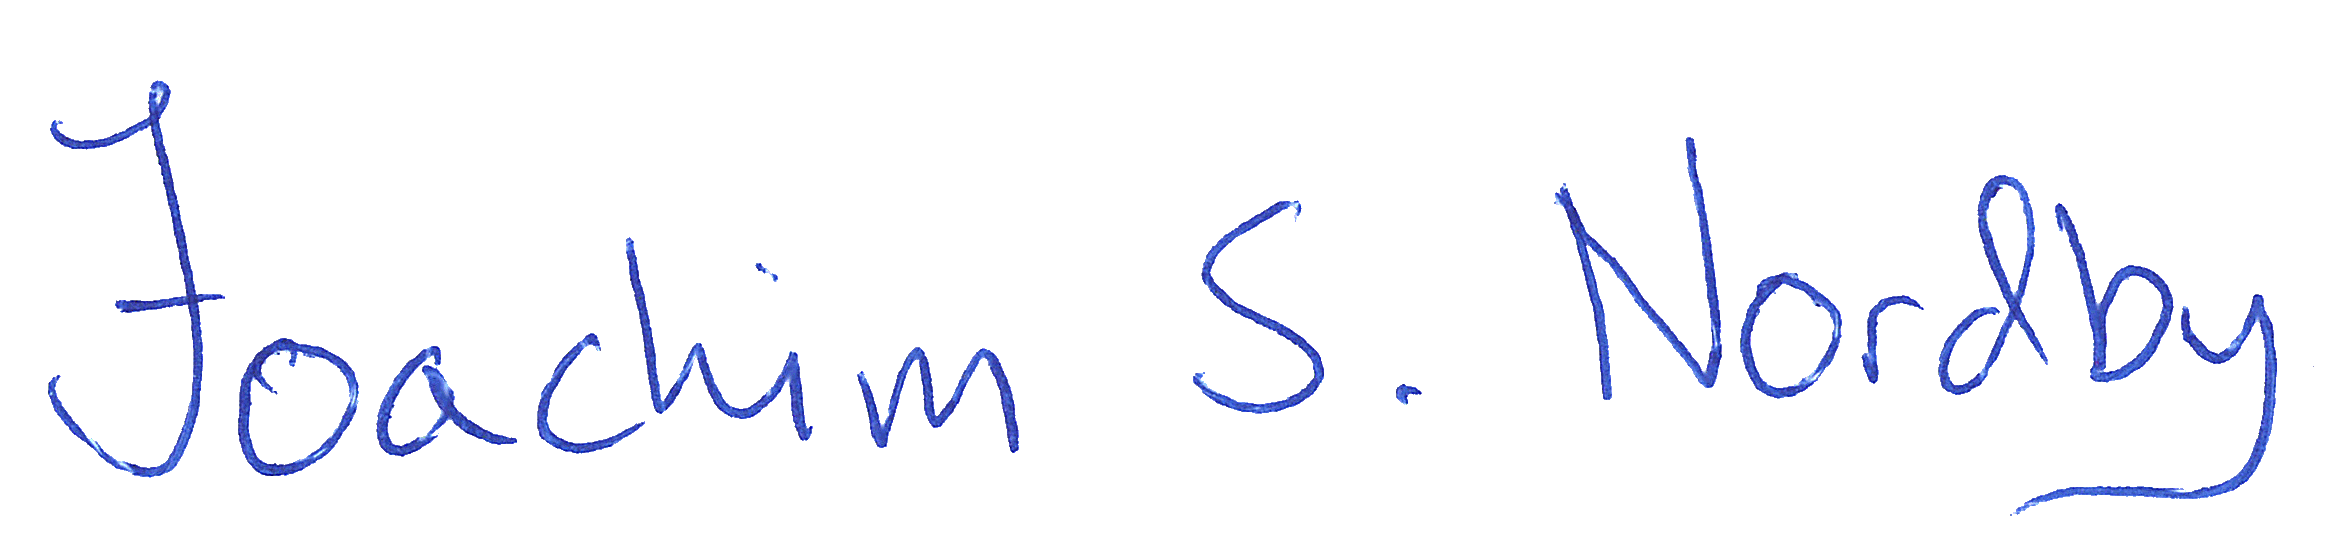 Joachim S. Nordby